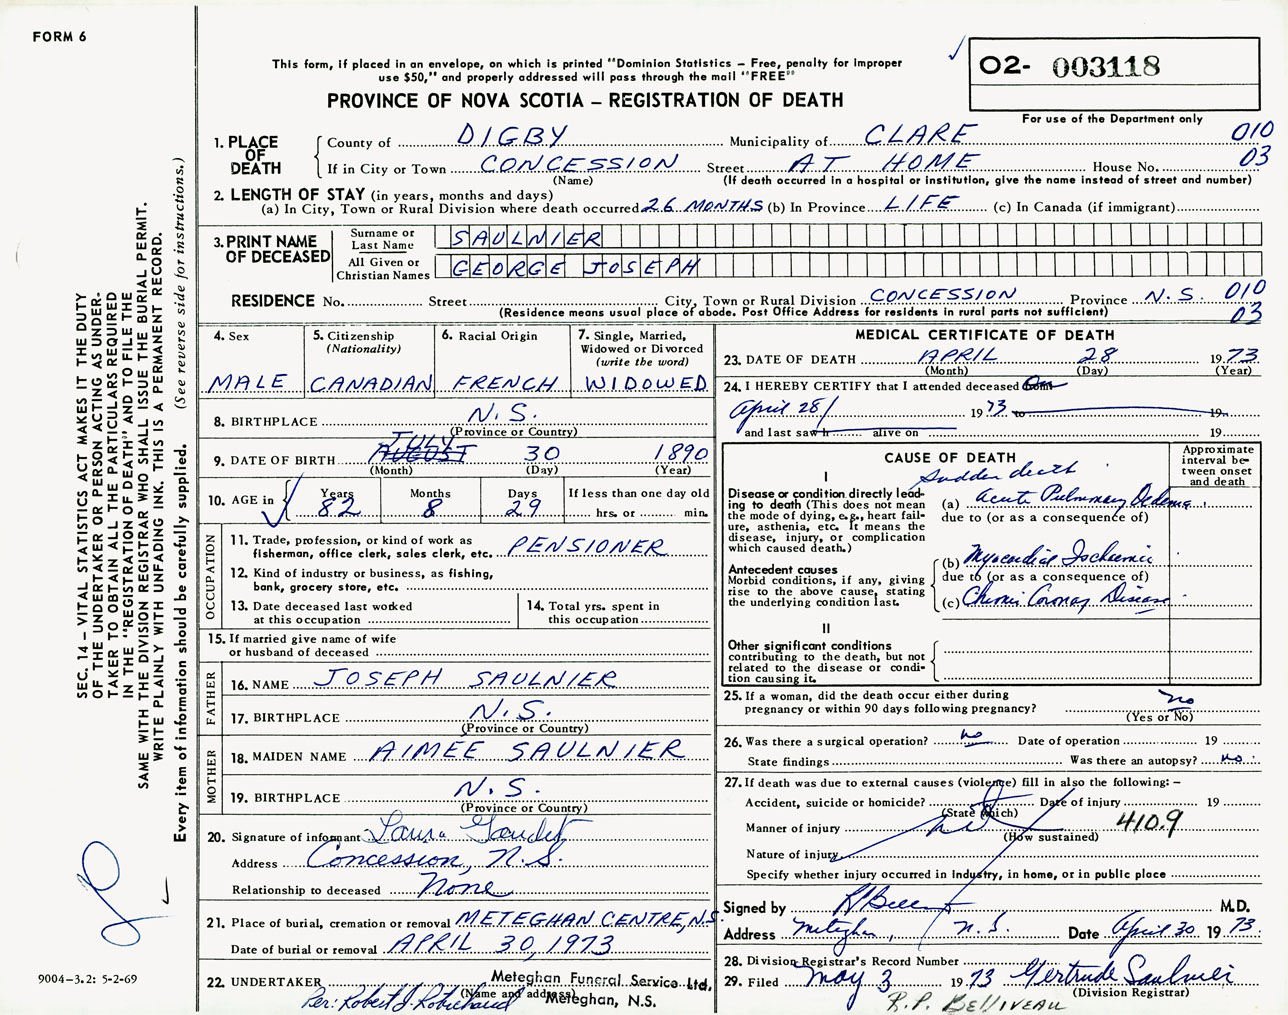 FORM 6
This form, if placed in an envelope, on which is printed "Dominion Statistics – Free, penalty for improper
use $50," and properly addressed will pass through the mail "FREE"
O2- 003118
PROVINCE OF NOVA SCOTIA – REGISTRATION OF DEATH
For use of the Department only
1. PLACE OF DEATH
County of DIGBY Municipality of CLARE 010
If in City or Town CONCESSION Street AT HOME House No. 03
(Name) (If death occurred in a hospital or institution, give the name instead of street and number)
2. LENGTH OF STAY (in years, months and days)
(a) In City, Town or Rural Division where death occurred 26 MONTHS (b) In Province LIFE (c) In Canada (if immigrant)
3. PRINT NAME OF DECEASED
Surname or Last Name SAULNIER
All Given or Christian Names GEORGE JOSEPH
RESIDENCE No. Street City, Town or Rural Division CONCESSION Province N.S. 010
(Residence means usual place of abode. Post Office Address for residents in rural parts not sufficient) 03
4. Sex
MALE
5. Citizenship
(Nationality)
CANADIAN
6. Racial Origin
FRENCH
7. Single, Married,
Widowed or Divorced
(write the word)
WIDOWED
8. BIRTHPLACE N.S.
(Province or Country)
JULY
9. DATE OF BIRTH AUGUST 30 1890
(Month) (Day) (Year)
10. AGE in Years 82 Months 8 Days 29 If less than one day old
hrs. or min.
OCCUPATION
11. Trade, profession, or kind of work as
fisherman, office clerk, sales clerk, etc. PENSIONER
12. Kind of industry or business, as fishing,
bank, grocery store, etc.
13. Date deceased last worked
at this occupation
14. Total yrs. spent in
this occupation
15. If married give name of wife
or husband of deceased
FATHER
16. NAME JOSEPH SAULNIER
17. BIRTHPLACE N.S.
(Province or Country)
MOTHER
18. MAIDEN NAME AIMEE SAULNIER
19. BIRTHPLACE N.S.
(Province or Country)
20. Signature of informant Laura Gaudet
Address Concession, N.S.
Relationship to deceased None
21. Place of burial, cremation or removal METEGHAN CENTRE, N.S.
Date of burial or removal APRIL 30, 1973
22. UNDERTAKER Meteghan Funeral Service Ltd.
(Name and address) Meteghan, N.S.
Per: Robert J. Robichaud
MEDICAL CERTIFICATE OF DEATH
23. DATE OF DEATH APRIL 28 1973
(Month) (Day) (Year)
24. I HEREBY CERTIFY that I attended deceased from On
April 28/ 1973 to 19
and last saw h alive on 19
CAUSE OF DEATH
Approximate interval between onset and death
I
Sudden death
Disease or condition directly lead-
ing to death (This does not
mean the mode of dying, e.g., heart fail-
ure, asthenia, etc. It means the
disease, injury, or complication
which caused death.)
(a) Acute Pulmonary Oedema
due to (or as a consequence of)
Antecedent causes
Morbid conditions, if any, giving
rise to the above cause, stating
the underlying condition last.
(b) Myocardial Ischaemia
due to (or as a consequence of)
(c) Chronic Coronary Disease
II
Other significant conditions
contributing to the death, but not
related to the disease or condi-
tion causing it.
25. If a woman, did the death occur either during
pregnancy or within 90 days following pregnancy? no
(Yes or No)
26. Was there a surgical operation? no Date of operation 19
State findings Was there an autopsy? no
27. If death was due to external causes (violence) fill in also the following: –
Accident, suicide or homicide? Date of injury 19
(State which)
Manner of injury 410.9
(How sustained)
Nature of injury
Specify whether injury occurred in Industry, in home, or in public place
Signed by M.D.
Address Meteghan, N.S. Date April 30 1973
28. Division Registrar's Record Number
29. Filed May 3 1973 Gertrude Saulnier
(Division Registrar)
R.P. BELLIVEAU
SEC. 14 – VITAL STATISTICS ACT MAKES IT THE DUTY
OF THE UNDERTAKER OR PERSON ACTING AS UNDER-
TAKER TO OBTAIN ALL THE PARTICULARS REQUIRED
IN THE "REGISTRATION OF DEATH" AND TO FILE THE
SAME WITH THE DIVISION REGISTRAR WHO SHALL ISSUE THE BURIAL PERMIT.
WRITE PLAINLY WITH UNFADING INK. THIS IS A PERMANENT RECORD.
Every item of information should be carefully supplied. (See reverse side for instructions.)
9004-3.2: 5-2-69